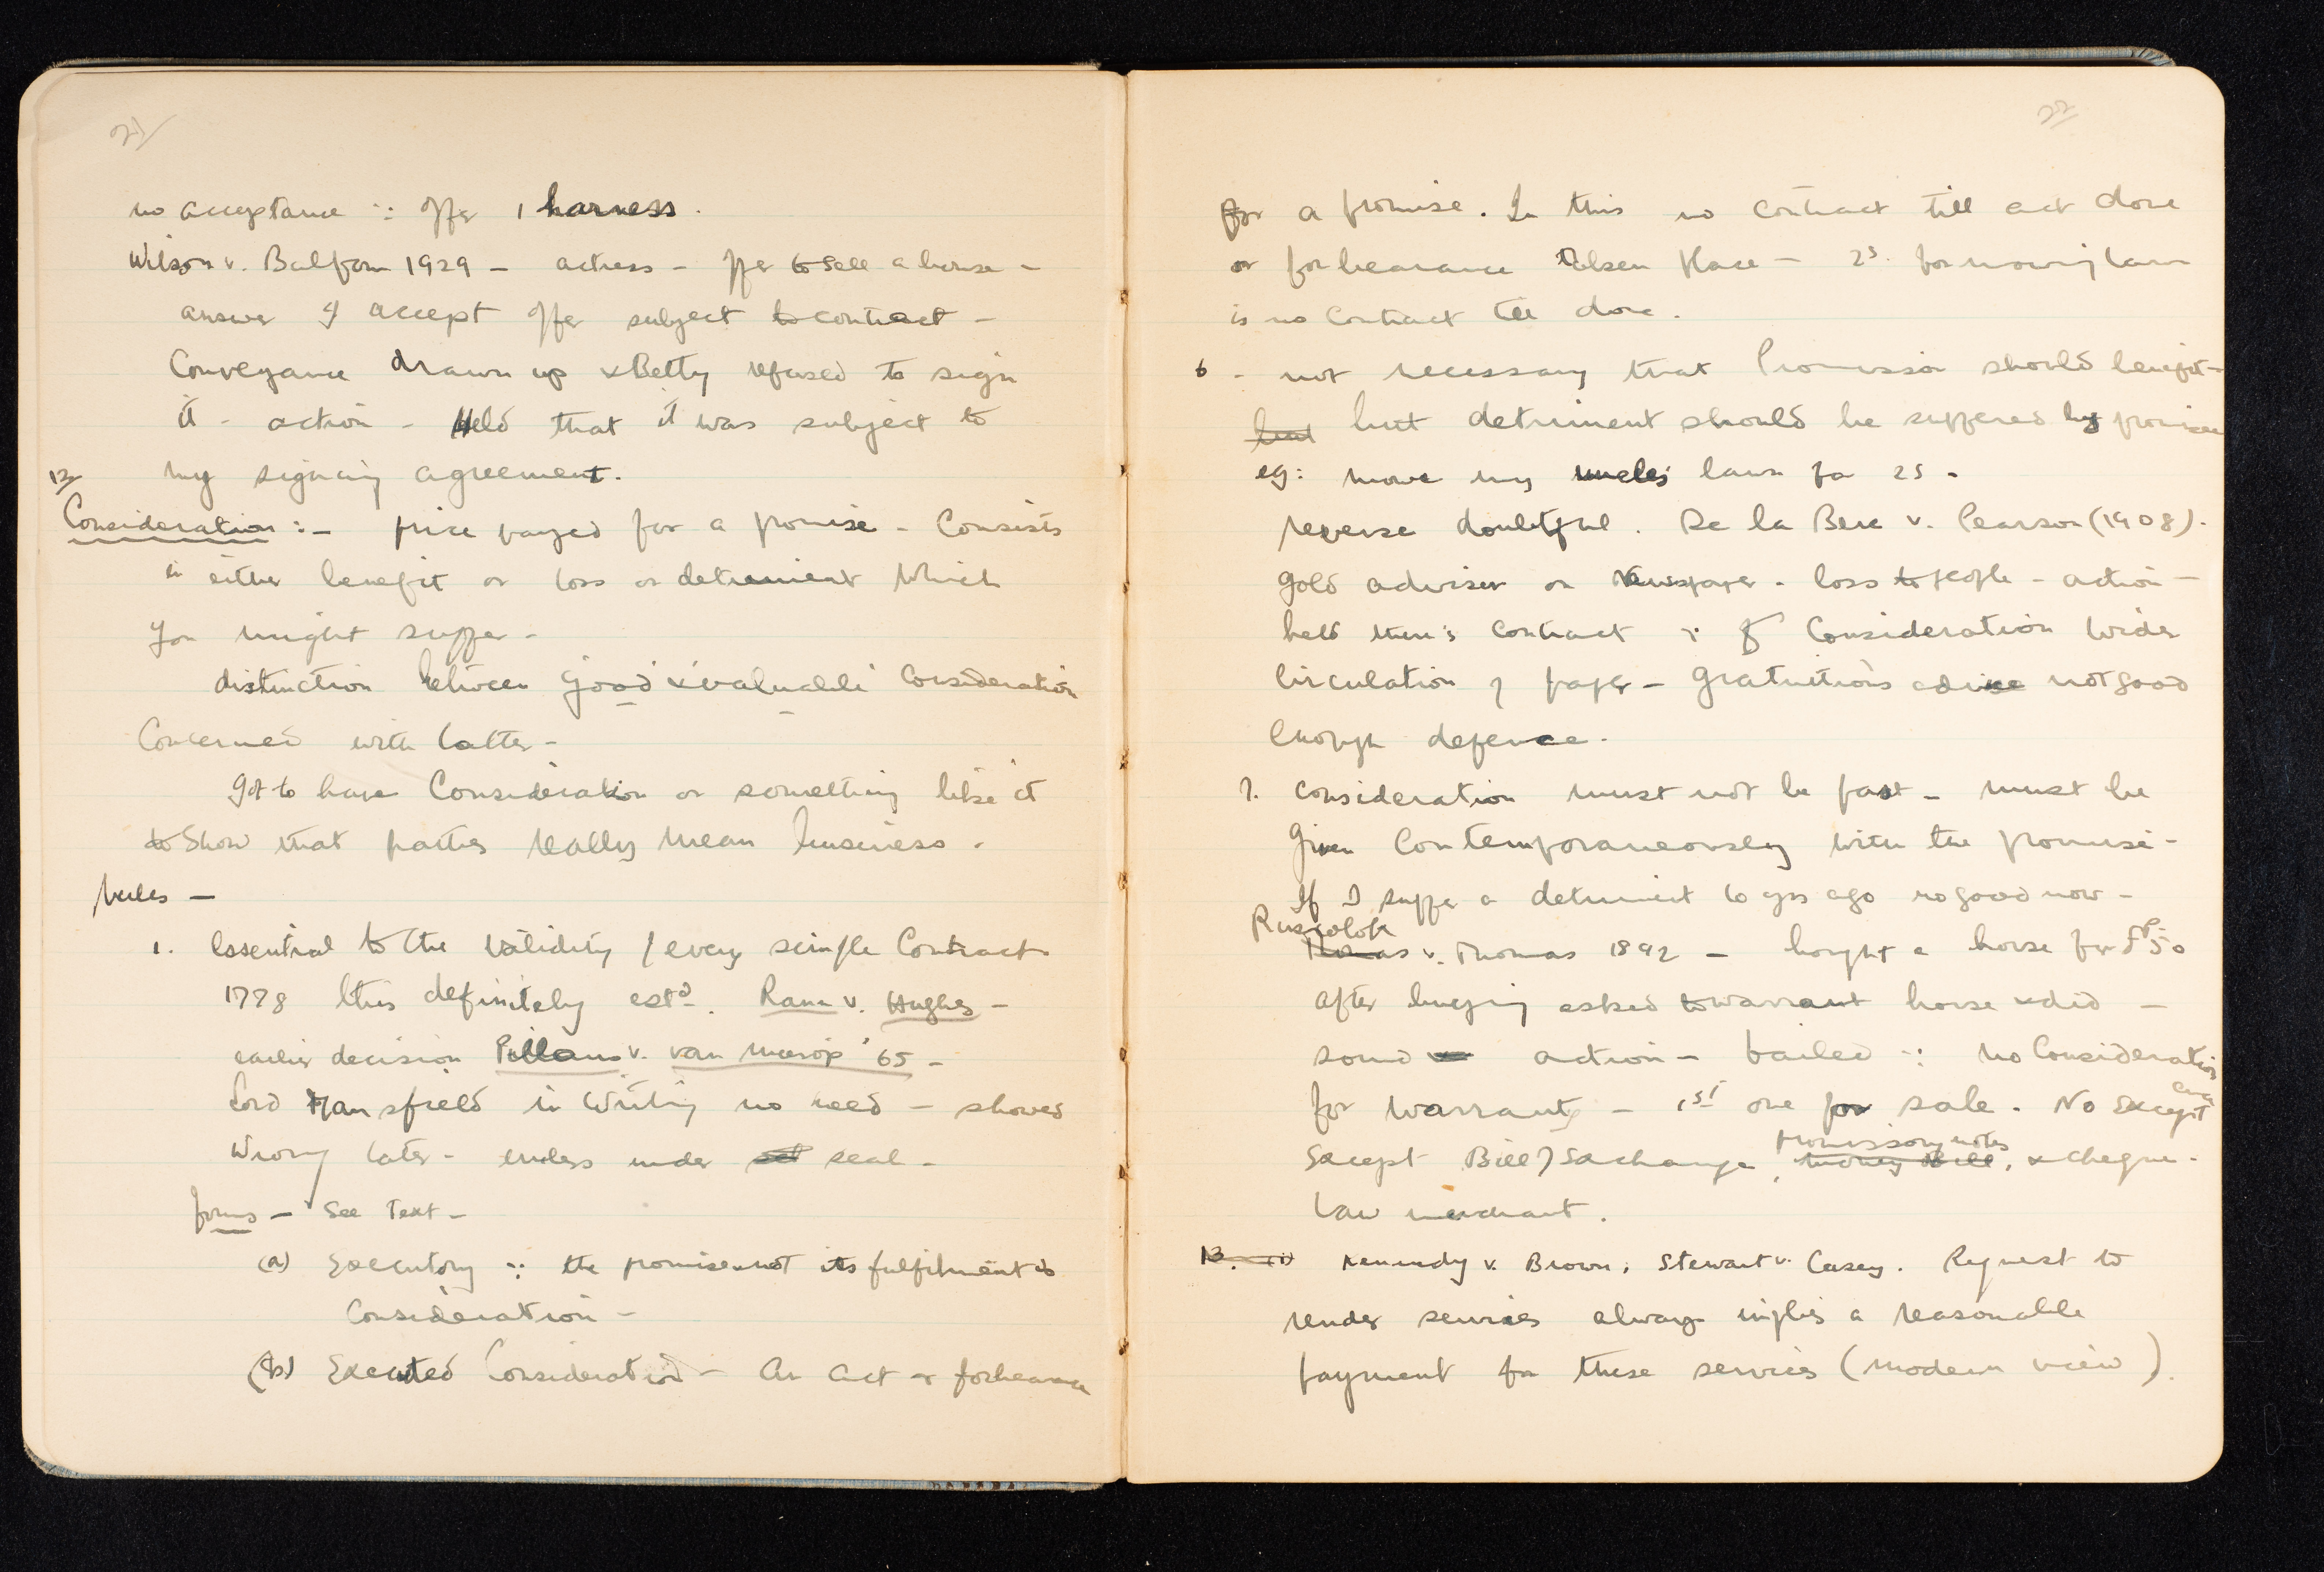 21
no acceptance ∵ offer / harness.
Wilson v. Balfour 1929 – actress – offer to sell a house –
answer I accept offer subject to contract –
Conveyance drawn up & Betty refused to sign
it – action – Held that it was subject to
my signing agreement.
12
Consideration :– price payed for a promise – Consists
in either benefit or loss or detriment which
you might suffer –
distinction between 'good' & 'valuable' Consideration
Concerned with latter –
got to have Consideration or something like it
to show that parties really mean business.
Rules –
1. Essential to the validity / every simple Contract
1778 this definitely estd. Rann v. Hughes –
earlier decision Pillans v. van Mierop '65 –
Lord Mansfield in writing no need – shoved
wrong later – unless under seal –
forms – See Text –
(a) Executory ∵ the promise not its fulfilment is
Consideration –
(b) Executed Consideration – An act or forbearance
22
for a promise. In this no contract till act done
or forbearance – 2s. for mowing lawn
is no contract till done.
6 – not necessary that Promissor should benefit –
but but detriment should be suffered by promisee
eg: mow my uncles' lawn for 2s –
reverse doubtful. De la Bere v. Pearson (1908).
gold adviser on Newspaper – loss to people – action –
held there's contract ∵ of Consideration wider
circulation of paper – gratuitous advice not good
enough defence.
7. consideration must not be past – must be
given contemporaneously with the promise –
If I suffer a detriment 10 yrs ago no good now –
Ruscolok
Thomas v. Thomas 1842 – bought a horse for £50
after buying asked to warrant horse & did –
sound action – failed ∵ no Consideration
for warranty – 1st one for sale. No Except
Except Bill of Exchange, promissory notes
money Bill, & cheque –
Law merchant.
13. Kennedy v. Brown, Stewart v. Casey. Request to
render services always implies a reasonable
payment for these services (modern view).